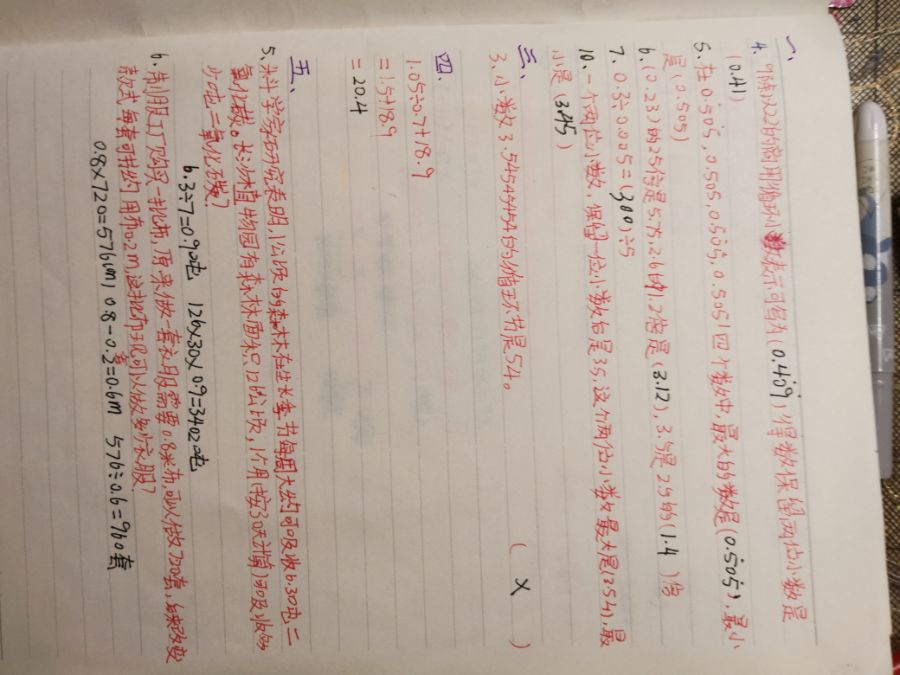 一、
4. 9除以22的商用循环小数表示可写为(0.4̇09̇)得数保留两位小数是
(0.41)
5. 在0.5̇05̇, 0.505, 0.50̇5̇, 0.5051四个数中, 最大的数是(0.5̇05̇), 最小
是(0.505)
6. (0.23)的25倍是5.75, 2.6的1.2倍是(3.12), 3.5是2.5的(1.4)倍
7. 0.3÷0.005=(300)÷5
10. 一个两位小数, 保留一位小数后是3.5, 这个两位小数最大是(3.54), 最
小是(3.45)
三、
3. 小数3.5454545454的循环节是54。 (×)
四、
1.05÷0.7+18.9
=1.5+18.9
=20.4
五、
5. 科学家研究表明, 1公顷的森林在生长季节每周大约可吸收6.30吨二
氧化碳。长沙植物园有森林面积126公顷, 1个月(按30天计算)可吸收多
少吨二氧化碳?
6.3÷7=0.90吨 126×30×0.9=3402吨
6. 制服工厂购买一批布, 原来做一套衣服需要0.8米布, 可以做720套, 后来改变
款式每套可节约用布0.2m, 这批布现可以做多少套衣服?
0.8×720=576(m) 0.8-0.2=0.6m 576÷0.6=960套